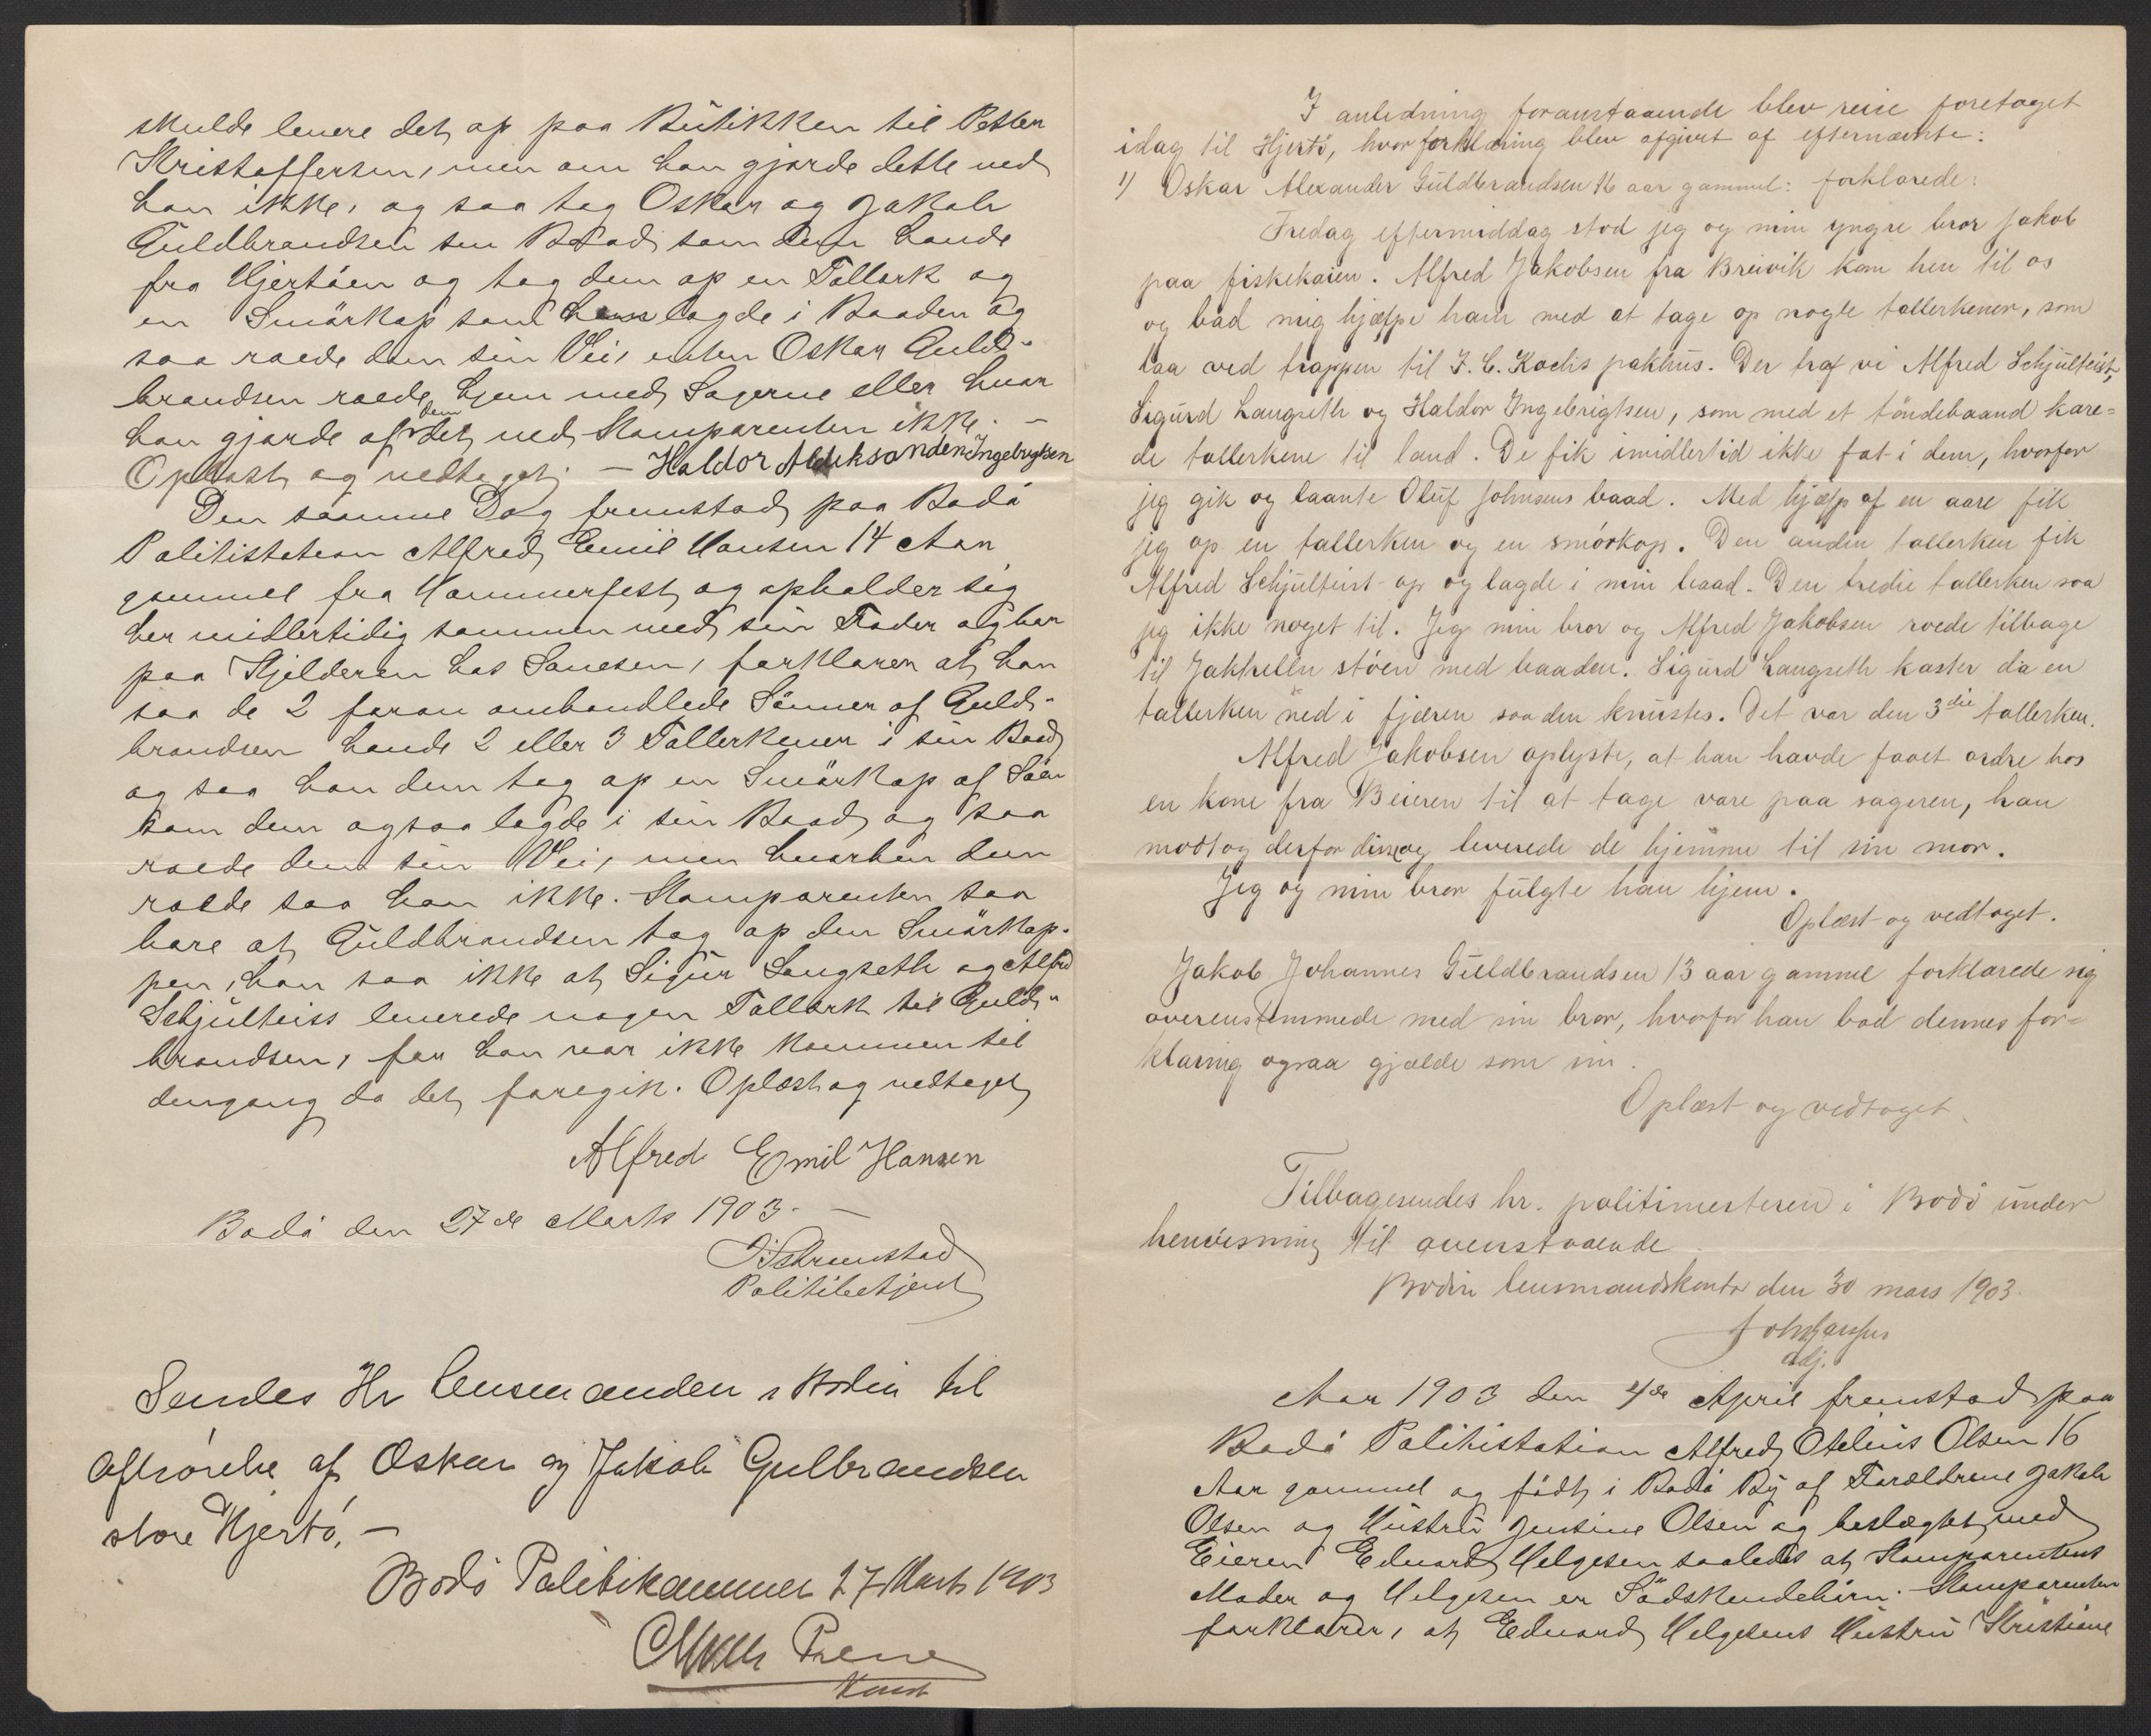 skulde levere det op paa Butikken til Petter
Kristoffersen, men om han gjorde dette ved
han ikke, og saa tog Oskar og Jakob
Guldbrandsen sin Baad som dem havde
fra Hjertöen og tog dem op en Tallerk og
en Smörkop som lagde i Baaden og
saa roede dem sin Vei, enten Oskar Guld-
brandsen roede hjem med Sagerne eller hvor
han gjorde af dem det ved Komparenten ikke. —
Oplæst og vedtaget. — Haldor Aleksandersen Ingebrigtsen
Den samme Dag fremstod paa Bodö
Politistation Alfred Emil Hansen 14 Aar
gammel fra Hammerfest og opholder sig
her midlertidig sammen med sin Fader og bor
paa Kjelderen hos Sanesen, forklarer at han
saa de 2 foran omhandlede Sönner af Guld-
brandsen havde 2 eller 3 Tallerkener i sin Baad
og saa han dem tog op en Smörkop af Söen
som dem ogsaa lagde i sin Baad og saa
roede dem sin Vei, men hvorhen dem
roede saa han ikke. Komparenten saa
bare at Guldbrandsen tog op den Smörkop-
pen, han saa ikke at Sigur Langseth og Alfred
Schjulteiss leverede nogen Tallerk til Guld-
brandsen, for han var ikke kommen til
dengang da det foregik. Oplæst og vedtaget
Alfred Emil Hansen
Bodö den 27de Marts 1903. —
Politibetjent
Sendes Hr Lensmanden i Bodin til
afhörelse af Oskar og Jakob Gulbrandsen
store Hjertö. —
Bodö Politikammer 27 Marts 1903
Konst
I anledning foranstaaende blev reise foretaget
idag til Hjertö, hvor forklaring blev afgivet af efternævnte:
1) Oskar Alexander Guldbrandsen 16 aar gammel: forklarede:
Fredag eftermiddag stod jeg og min yngre bror Jakob
paa fiskekaien. Alfred Jakobsen fra Breivik kom hen til os
og bad mig hjælpe ham med at tage op nogle tallerkener, som
laa ved trappen til J. C. Kochs pakhus. Der traf vi Alfred Schjulteist,
Sigurd Langseth og Haldor Ingebrigtsen, som med et töndebaand kare-
de tallerkene til land. De fik imidlertid ikke fat i dem, hvorfor
jeg gik og laante Oluf Johnsens baad. Med hjælp af en aare fik
jeg op en tallerken og en smörkop. Den anden tallerken fik
Alfred Schjulteist op og lagde i min baad. Den tredie tallerken saa
jeg ikke noget til. Jeg min bror og Alfred Jakobsen roede tilbage
til Jakthelln stöen med baaden. Sigurd Langseth kaster da en
tallerken ned i fjæren saa den knustes. Det var den 3die tallerken.
Alfred Jakobsen oplyste, at han havde faaet ordre hos
en kone fra Beieren til at tage vare paa sageren, han
modtog derfor disse og leverede de hjemme til sin mor.
Jeg og min bror fulgte han hjem.
Oplæst og vedtaget.
Jakob Johannes Guldbrandsen 13 aar gammel forklarede sig
overenstemmede med sin bror, hvorfor han bad dennes for-
klaring ogsaa gjælde som sin.
Oplæst og vedtaget.
Tilbagesendes hr. politimesteren i Bodö under
henvisning til ovenstaaende
Bodin lensmandskontor den 30 mars 1903.
adj.
Aar 1903 den 4de April fremstod paa
Bodö Politistation Alfred Otelius Olsen 16
Aar gammel og födt i Bodö By af Forældrene Jakob
Olsen og Hustru Jensine Olsen og beslægtet med
Eieren Edvard Helgesen saaledes at Komparentens
Moder og Helgesen er Södskendebörn. Komparenten
forklarer, at Edvard Helgesens Hustru Kristiane